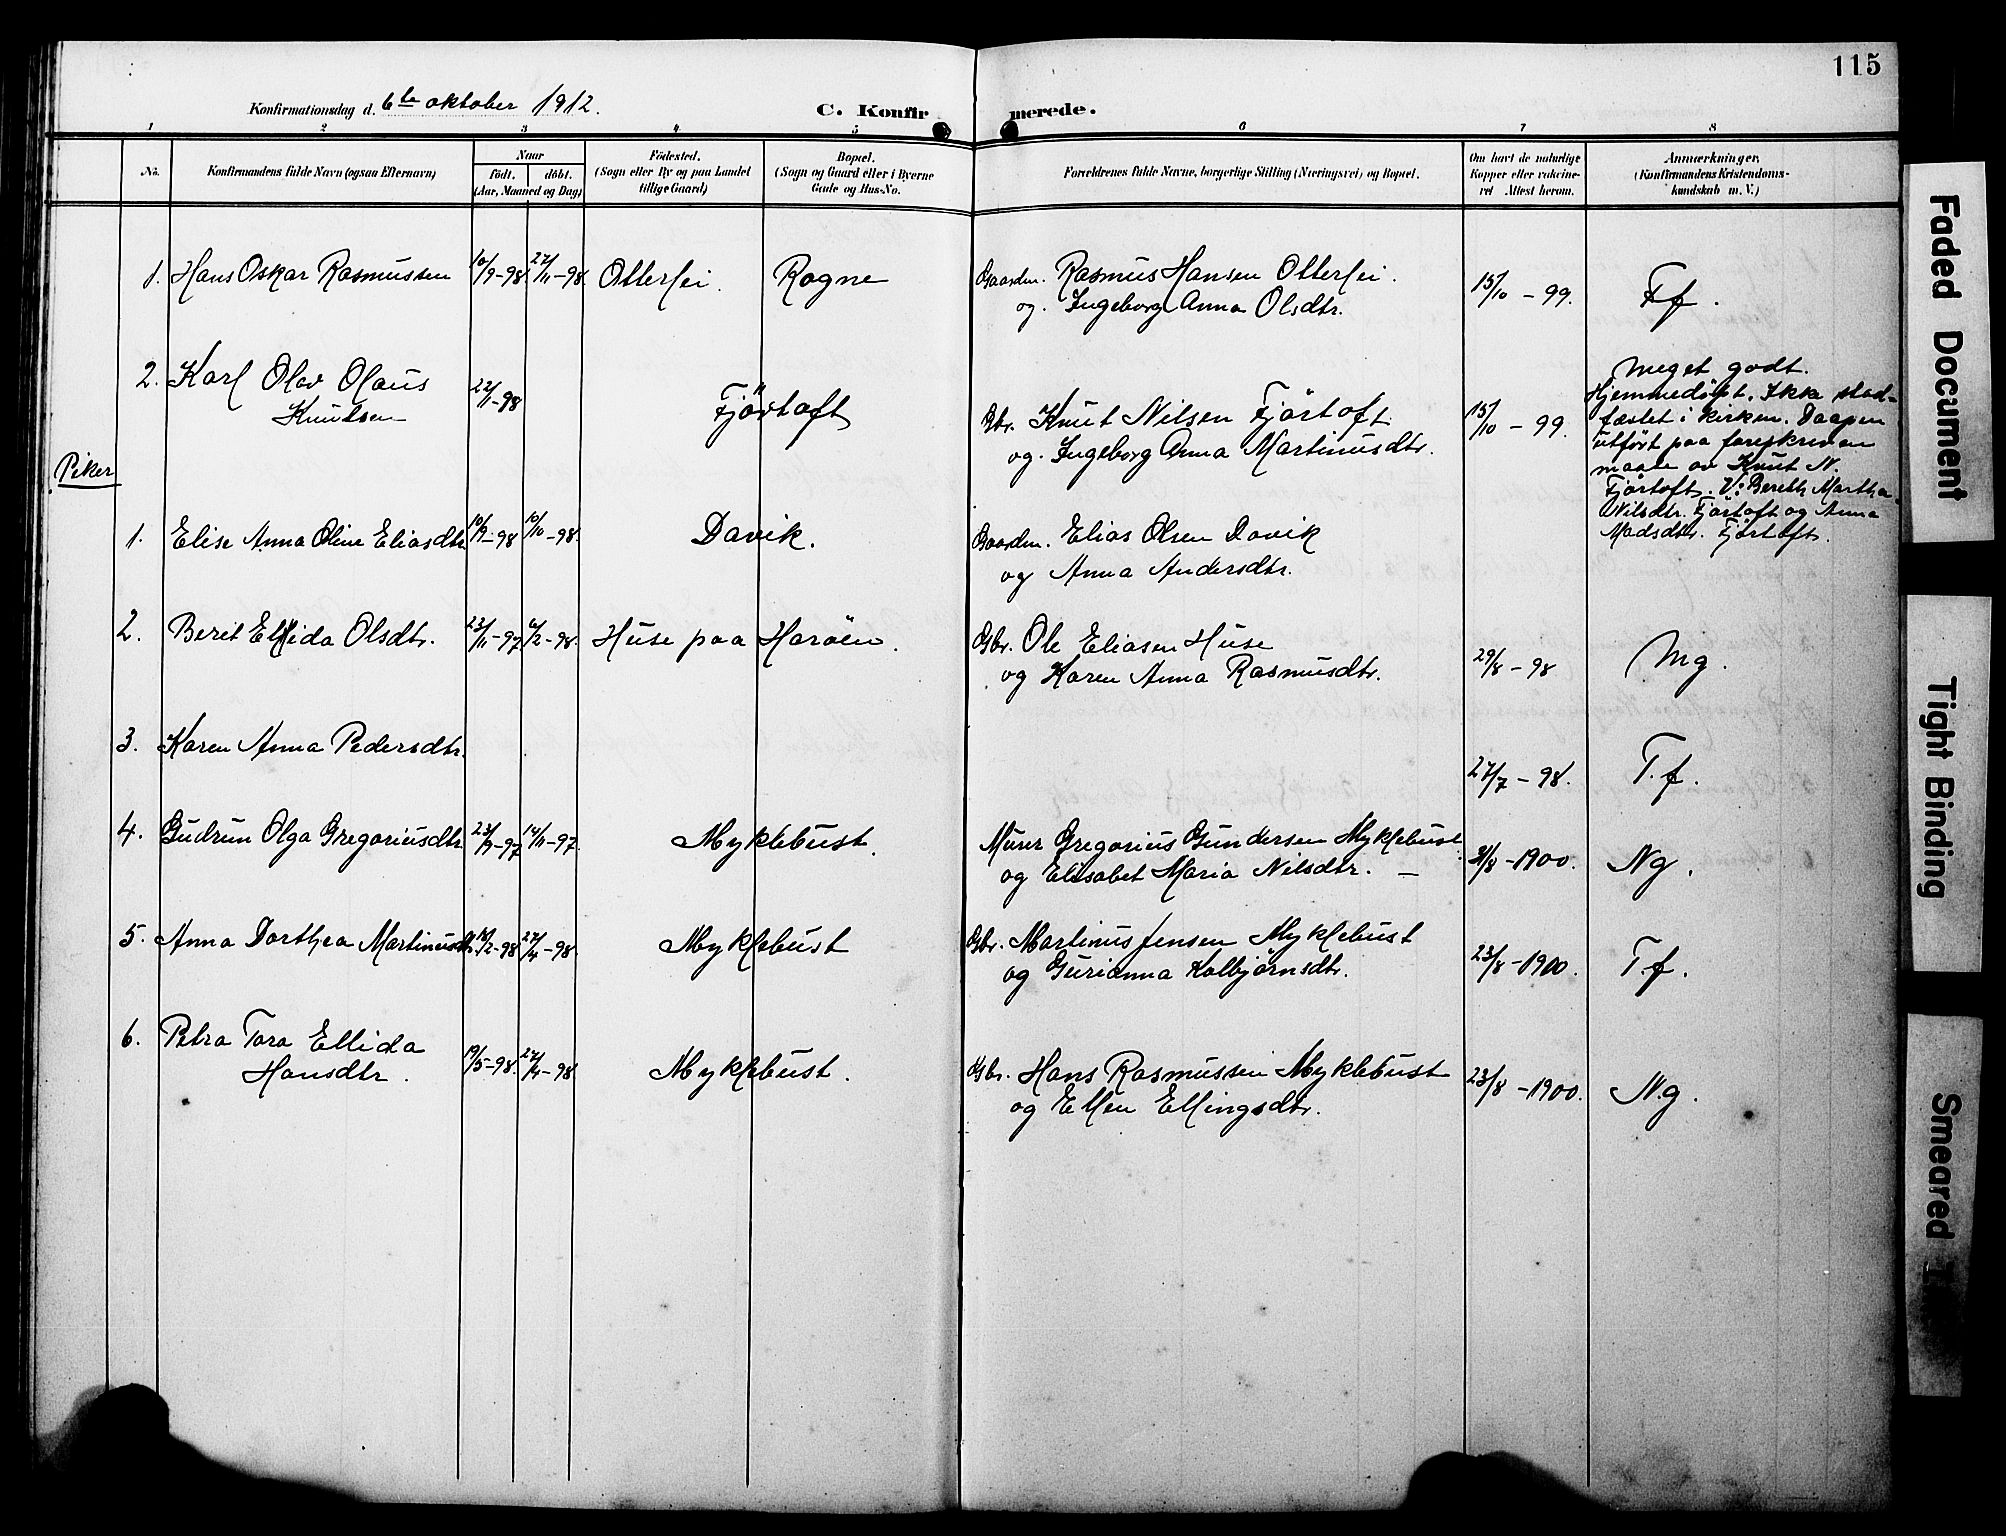 115
Konfirmationsdag d. 6te oktober 1912.
C. Konfirmerede.
1 2 3 4 5 6 7 8
No.
Konfirmandens fulde Navn (ogsaa Efternavn)
Naar
født. døbt.
(Aar, Maaned og Dag)
Fødested.
(Sogn eller By og paa Landet
tillige Gaard)
Bopæl.
(Sogn og Gaard eller i Byerne
Gade og Hus-No.
Forældrenes fulde Navne, borgerlige Stilling (Næringsvei) og Bopæl.
Om havt de naturlige
Kopper eller vakcine-
ret Attest herom.
Anmærkninger.
(Konfirmandens Kristendoms-
kundskab m. V.)
1. Hans Oskar Rasmussen 10/9-98. 27/11-98. Otterlei. Rogne Gaardm. Rasmus Hansen Otterlei. 15/10 - 99. T.f.
og. Ingeborg Anna Olsdtr.
2. Karl Olav Olaus
Knutsen 22/11-98 Fjörtoft Gbr. Knut Nilsen Fjörtoft 15/10 - 99.
og. Ingeborg Anna Martinusdtr.
Meget godt.
Hjemmedöpt. Ikke stad-
fæstet i kirken. Daapen
utført paa foreskreven
maate av Knut N.
Fjörtoft. V: Bereth Martha
Nilsdtr. Fjörtoft og Anna
Madsdtr. Fjörtoft.
Piker
1. Elise Anna Oline Eliasdtr. 10/9-98 10/10-98. Davik. Gaardm. Elias Olsen Davik
og Anna Andersdtr.
2. Berit Ellida Olsdtr. 23/11-97 6/2-98. Huse paa Haröen. Gbr. Ole Eliasen Huse
og Karen Anna Rasmusdtr. 29/8-98 Mg.
3. Karen Anna Pedersdtr. 27/7-98. T.f.
4. Gudrun Olga Gregoriusdtr. 23/9-97 14/11-97. Myklebust. Murer Gregorius Gundersen Myklebust.
og Elisabet Maria Nilsdtr. — 31/8-1900. Ng.
5. Anna Dorthea Martinusdtr. 16/2-98 27/4-98. Myklebust Gbr. Martinus Jensen Myklebust
og Gurianna Kolbjörnsdtr. 23/8-1900. T.f.
6. Petra Tora Ellida
Hansdtr. 19/5-98. 27/11-98 Myklebust. Gbr. Hans Rasmussen Myklebust 23/8-1900. N.g.
og Ellen Ellingsdtr.
Faded Document
Tight Binding
Smeared